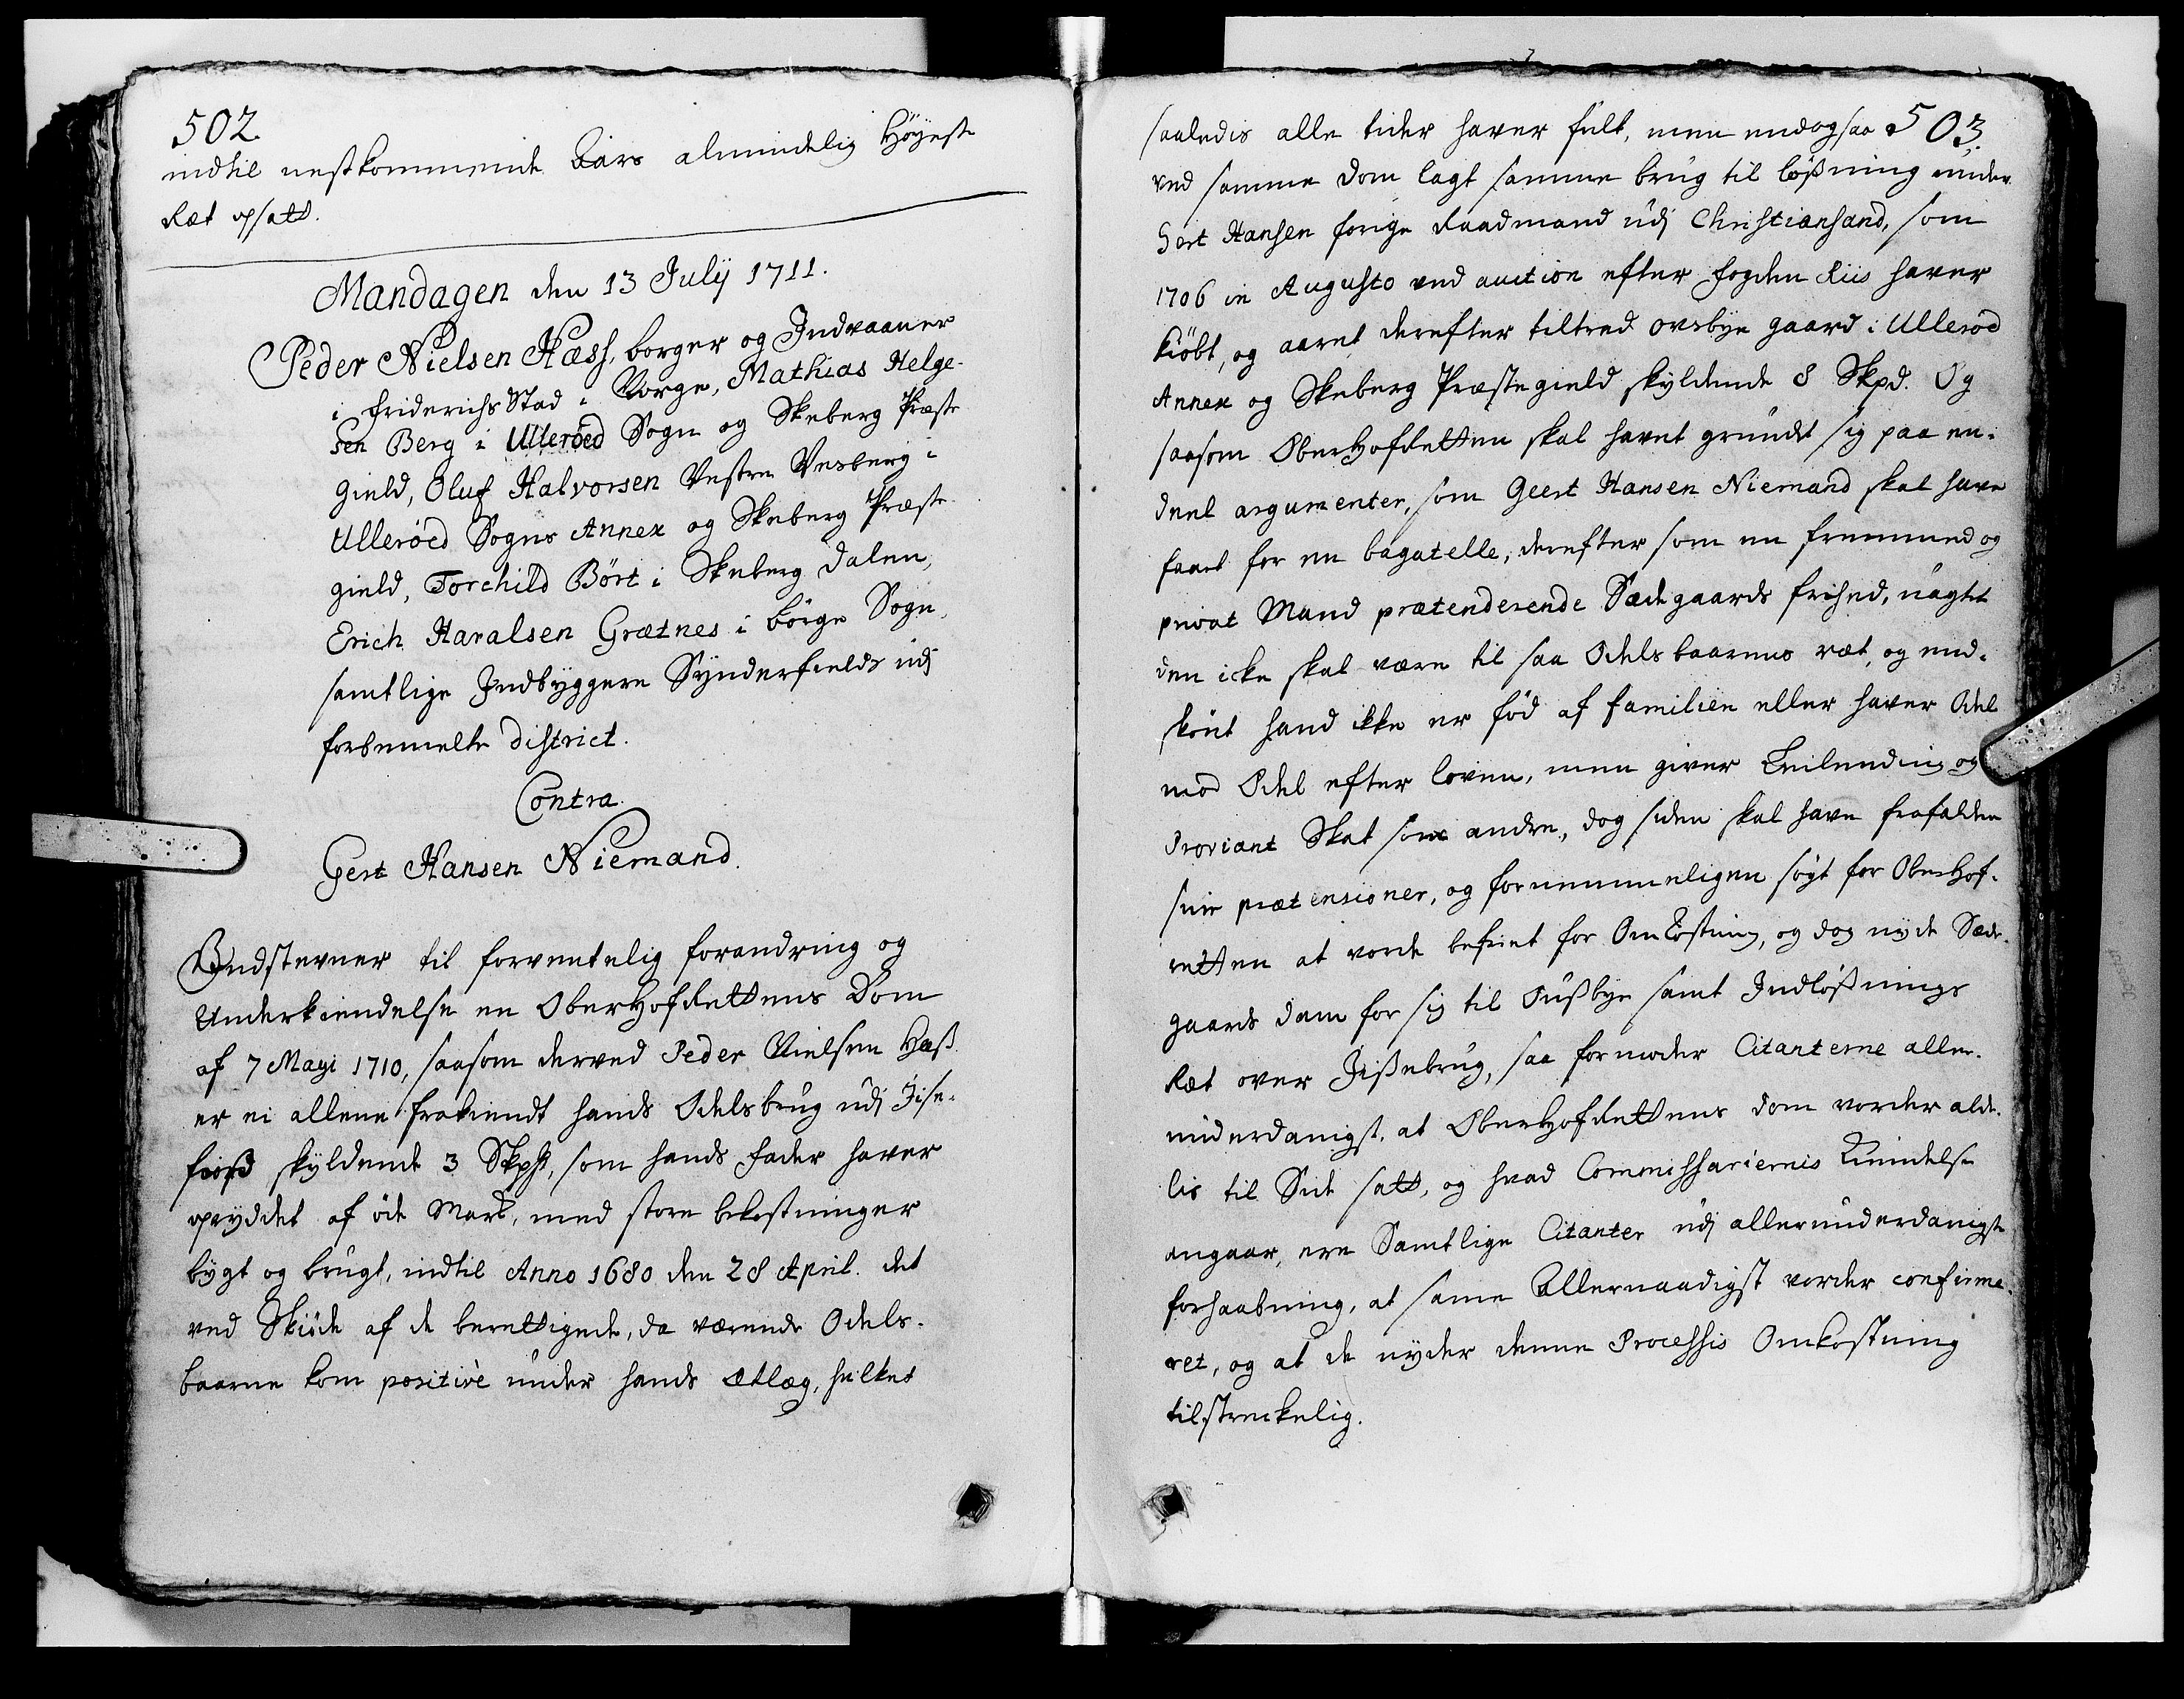 502.
indtil nestkommende Aars almindelig Høyeste
Ræt opsatt.
Mandagen den 13 Julÿ 1711.
Peder Nielsen Hæss, borger og Indvaaner
i Friderichs Stad i Norge, Mathias Helge-
sen Berg i Ulleröed Sogn og Skeberg Præste
gield, Oluf Halvorsen Vestre Vesberg i
Ulleröed Sogns Annex og Skeberg Præste-
gield, Torchild Bört i Skeberg dalen,
Erich Haralsen Grætnes i börge Sogn,
samtlige Indbyggere Sÿnderfields udj
forbemelte district.
Contra
Gert Hansen Niemand.
Indstevner til forventelig forandring og
Underkiendelse en OberHofRettens Dom
af 7 Maÿi 1710, saasom derved Peder Nielsen Hæss
er ei allene frakiendt hands Odelsbrug udj Jise-
fioss skÿldende 3 Skp, som hands fader haver
oprÿddet af öde Mark, med store bekostninger
bÿgt og brugt, indtil Anno 1680 den 28 April. det
ved Skiöde af de berettigede, da værende Odels-
baarne kom positivè under hands Ætlæg, hvilket
503.
saaledis alle tider haver fult, men endogsaa
ved samme dom lagt samme brug til lößning under
Gert Hansen forige Raadmand udj Christiansand, som
1706 in Augusto ved auction efter fogden Riis haver
kiöbt, og aaret derefter tiltræd ovsbÿe gaard i Ulleröd
Annex og Skeberg Præstegield skÿldende 8 Skpd. Og
saasom OberHofRetten skal havet grundet sig paa en-
deel argumenter, som Geert Hansen Niemand skal have
faaet for en bagatelle, derefter som en fremmed og
privat Mand prætenderende Sædegaards frihed, uagtet
den icke skal være til saa Odelsbaarnes ræt, og end-
skönt hand ikke er föd af familien eller haver Odel
mod Odel efter loven, men giver Leilending og
Proviant Skat som andre, dog siden skal have frafalden
sine prætensioner, og fornemmeligen sögt for OberHof-
retten at vorde befriet for Omkostning, og dog nÿde Sæde-
gaards dom for sig til Ousbÿe samt Indlößnings
Ræt over Jißebrug, saa formoder Citanterne aller-
underdanigst, at OberHofRettens dom vorder alde-
lis til Side satt, og hvad Commissariernis Kiendelse
angaar, ere Samtlige Citanter udj allerunderdanigste
forhaabning, at same Allernaadigst vorder confirme-
ret, og at de nÿder denne Processis Omkostning
tilstreckelig.